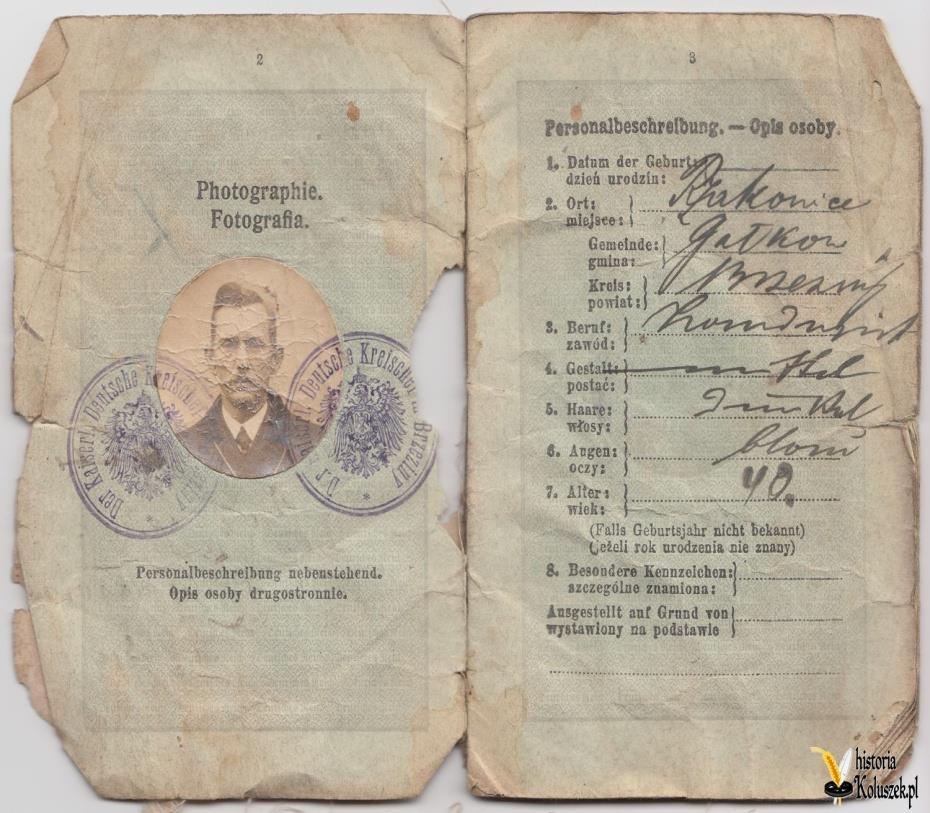 2
Photographie.
Fotografia.
Der Kaiserl. Deutsche Kreischef
Deutsche Kreischef in Brzeziny
Personalbeschreibung nebenstehend.
Opis osoby drugostronnie.
3
Personalbeschreibung. — Opis osoby.
1. Datum der Geburt:
dzień urodzin:
2. Ort:
miejsce:
Gemeinde: Gałkow
gmina:
Kreis: Brzeziny
powiat:
3. Beruf:
zawód:
4. Gestalt: mittel
postać:
5. Haare: dunkel
włosy:
6. Augen: blau
oczy:
7. Alter: 40.
wiek:
(Falls Geburtsjahr nicht bekannt)
(jeżeli rok urodzenia nie znany)
8. Besondere Kennzeichen:
szczególne znamiona:
Ausgestellt auf Grund von
wystawiony na podstawie
historia
Koluszek.pl